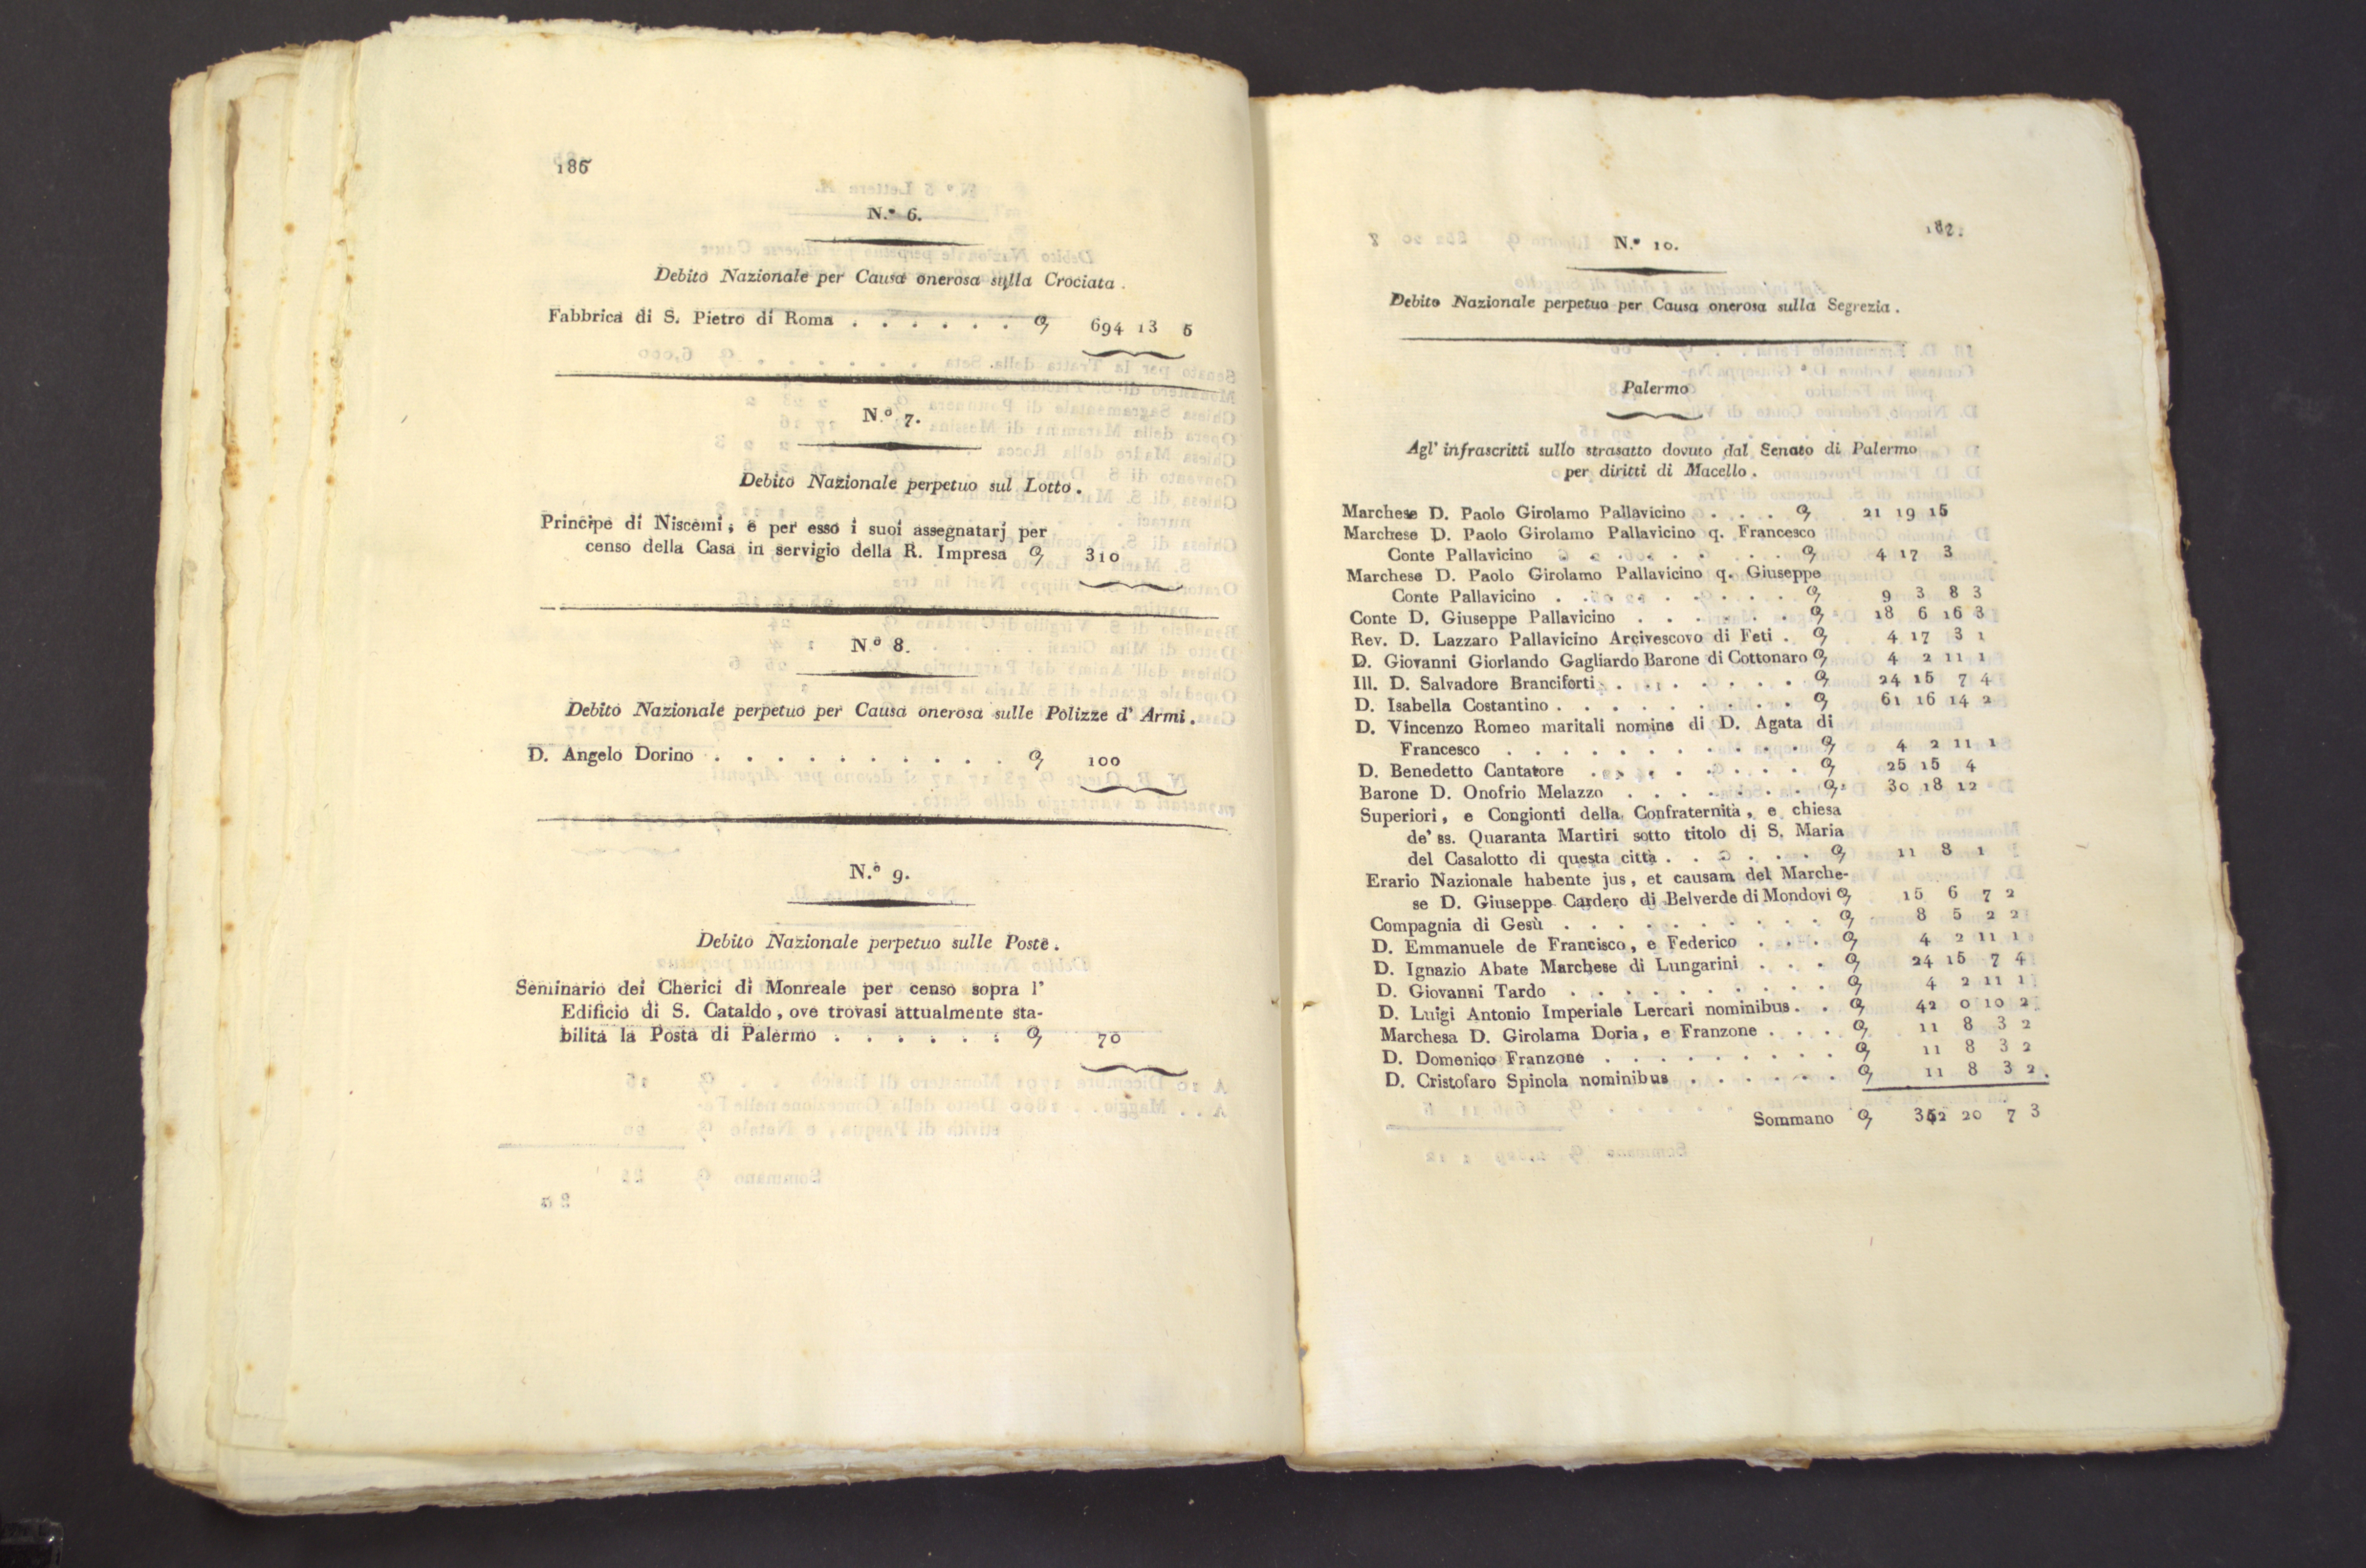 186
N.º 6.
Debito Nazionale per Causa onerosa sulla Crociata .
Fabbrica di S. Pietro di Roma . . . . . . 694 13 5
N.º 7.
Debito Nazionale perpetuo sul Lotto .
Principe di Niscemi, e per esso i suoi assegnatarj per
censo della Casa in servigio della R. Impresa 310
N.º 8.
Debito Nazionale perpetuo per Causa onerosa sulle Polizze d' Armi .
D. Angelo Dorino . . . . . . . . . . 100
N.º 9.
Debito Nazionale perpetuo sulle Poste .
Seminario dei Cherici di Monreale per censo sopra l'
Edificio di S. Cataldo , ove trovasi attualmente sta-
bilita la Posta di Palermo . . . . . . 70
187.
N.º 10.
Debito Nazionale perpetuo per Causa onerosa sulla Segrezia .
Palermo
Agl' infrascritti sullo strasatto dovuto dal Senato di Palermo
per diritti di Macello .
Marchese D. Paolo Girolamo Pallavicino . . . 21 19 15
Marchese D. Paolo Girolamo Pallavicino q. Francesco
Conte Pallavicino . . . . . . . . . 4 17 3
Marchese D. Paolo Girolamo Pallavicino q. Giuseppe
Conte Pallavicino . . . . . . . . . 9 3 8 3
Conte D. Giuseppe Pallavicino . . . . . . . 18 6 16 3
Rev. D. Lazzaro Pallavicino Arcivescovo di Feti . 4 17 3 1
D. Giovanni Giorlando Gagliardo Barone di Cottonaro 4 2 11 1
Ill. D. Salvadore Branciforti . . . . . . . . 24 15 7 4
D. Isabella Costantino . . . . . . . . . 61 16 14 2
D. Vincenzo Romeo maritali nomine di D. Agata di
Francesco . . . . . . . . . . . 4 2 11 1
D. Benedetto Cantatore . . . . . . . . . 25 15 4
Barone D. Onofrio Melazzo . . . . . . . 30 18 12
Superiori , e Congionti della Confraternita , e chiesa
de' ss. Quaranta Martiri sotto titolo di S. Maria
del Casalotto di questa città . . . . . . 11 8 1
Erario Nazionale habente jus , et causam del Marche-
se D. Giuseppe Cardero di Belverde di Mondovi 15 6 7 2
Compagnia di Gesù . . . . . . . . . . 8 5 2 2
D. Emmanuele de Francisco , e Federico . . . 4 2 11 1
D. Ignazio Abate Marchese di Lungarini . . . 24 15 7 4
D. Giovanni Tardo . . . . . . . . . . 4 2 11 1
D. Luigi Antonio Imperiale Lercari nominibus . . 42 0 10 2
Marchesa D. Girolama Doria , e Franzone . . . 11 8 3 2
D. Domenico Franzone . . . . . . . . . 11 8 3 2
D. Cristofaro Spinola nominibus . . . . . . 11 8 3 2 .
Sommano 20 7 3